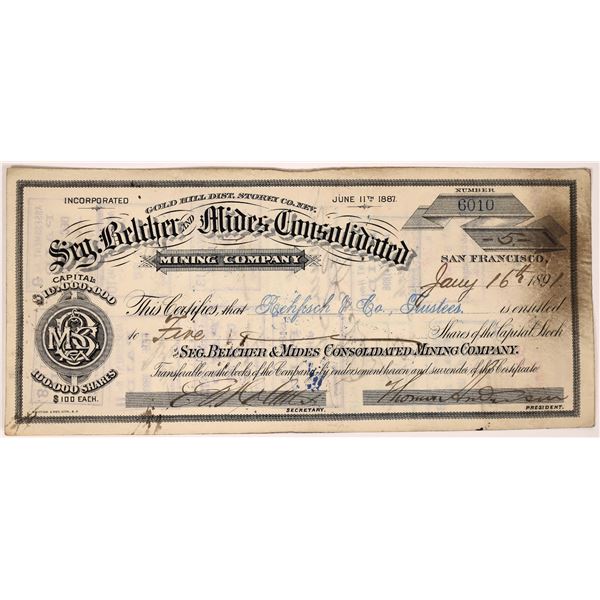 INCORPORATED
GOLD HILL DIST. STOREY CO. NEV.
JUNE 11TH 1887.
NUMBER
6010
5
Seg. Belcher AND Mides Consolidated
MINING COMPANY
SAN FRANCISCO,
Jany 16th 1891
CAPITAL
$10,000,000
This Certifies, that & Co., Trustees is entitled
to Five Shares of the Capital Stock
of the SEG. BELCHER & MIDES CONSOLIDATED MINING COMPANY.
Transferable on the books of the Company by endorsement hereon and surrender of this Certificate
100,000 SHARES
$100 EACH.
SECRETARY.
Thomas Anderson
PRESIDENT.